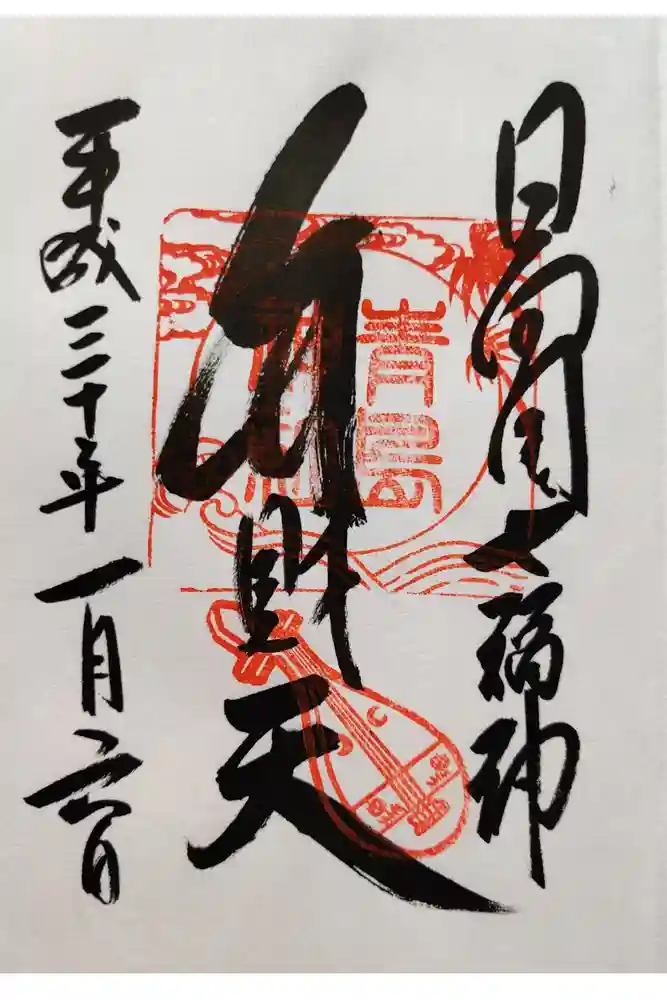 日向国七福神
弁財天
平成三十年一月六日
青島
神社